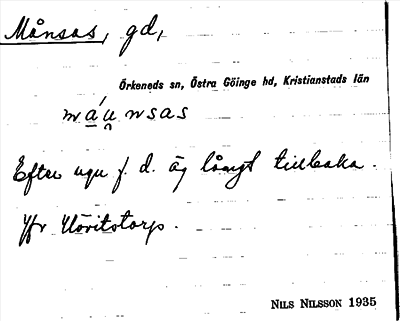 Månsas, gd,
Örkeneds sn, Östra Göinge hd, Kristianstads län
máu̯nsas
Efter ngn f. d. äg långt tillbaka.
Jfr Möritstorp.
NILS NILSSON 1935